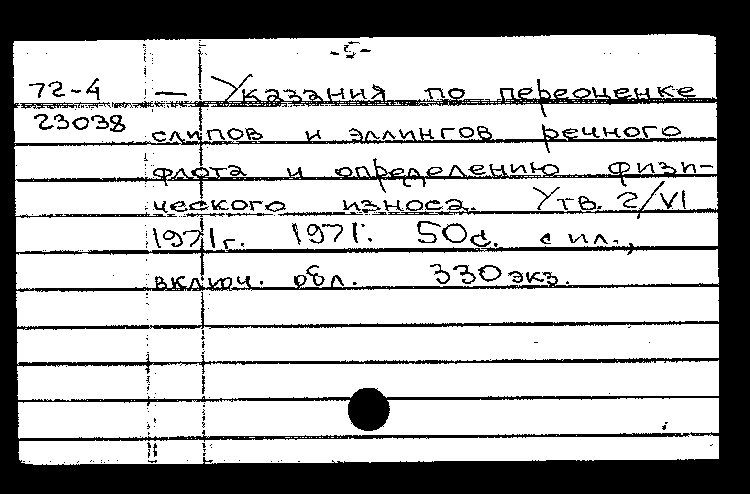 -5-
72-4 — Указания по переоценке
23038 слипов и эллингов речного
флота и определению физи-
ческого износа. Утв. 2/VI
1971г. 1971. 50с. с ил.,
включ. обл. 330 экз.